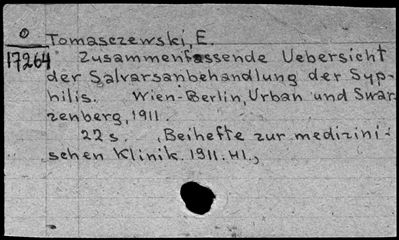 0
17264
Tomasczewski, E.
Zusammenfassende Uebersicht
der Salvarsanbehandlung der Syp-
hilis. Wien-Berlin, Urban und Swar-
zenberg, 1911.
22 s Beihefte zur medizini-
schen Klinik. 1911. H1.,